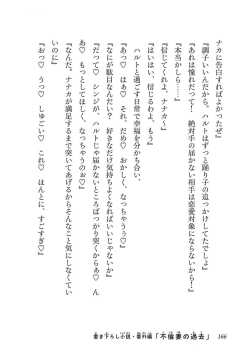 ナカに告白すればよかったぜ』
『調子いいんだから。ハルトはずっと踊り子の追っかけしてたでしょ』
『あれは憧れだって！　絶対手の届かない相手は恋愛対象にならないから』
『本当かしら……』
『信じてくれよ、ナナカ〜』
『はいはい、信じるわよ、もう』
　ハルトと過ごす日常で幸福を分かち合い、
『あっ♡　はぁ♡　それ、だめ♡　おかしく、なっちゃうぅ♡』
『なにが駄目なんだい？　好きなだけ気持ちよくなればいいじゃないか』
『だって♡　シンジが、ハルトじゃ届かないところばっかり突くから♡　あ♡　もっとしてほしく、なっちゃうのぉ♡』
『なんだ、ナナカが満足するまで突いてあげるからそんなこと気にしなくていいのに』
『おっ♡　うっ♡　しゅごい♡　これ♡　ほんとに、すごすぎ♡』
書き下ろし小説・番外編「不倫妻の過去」　166